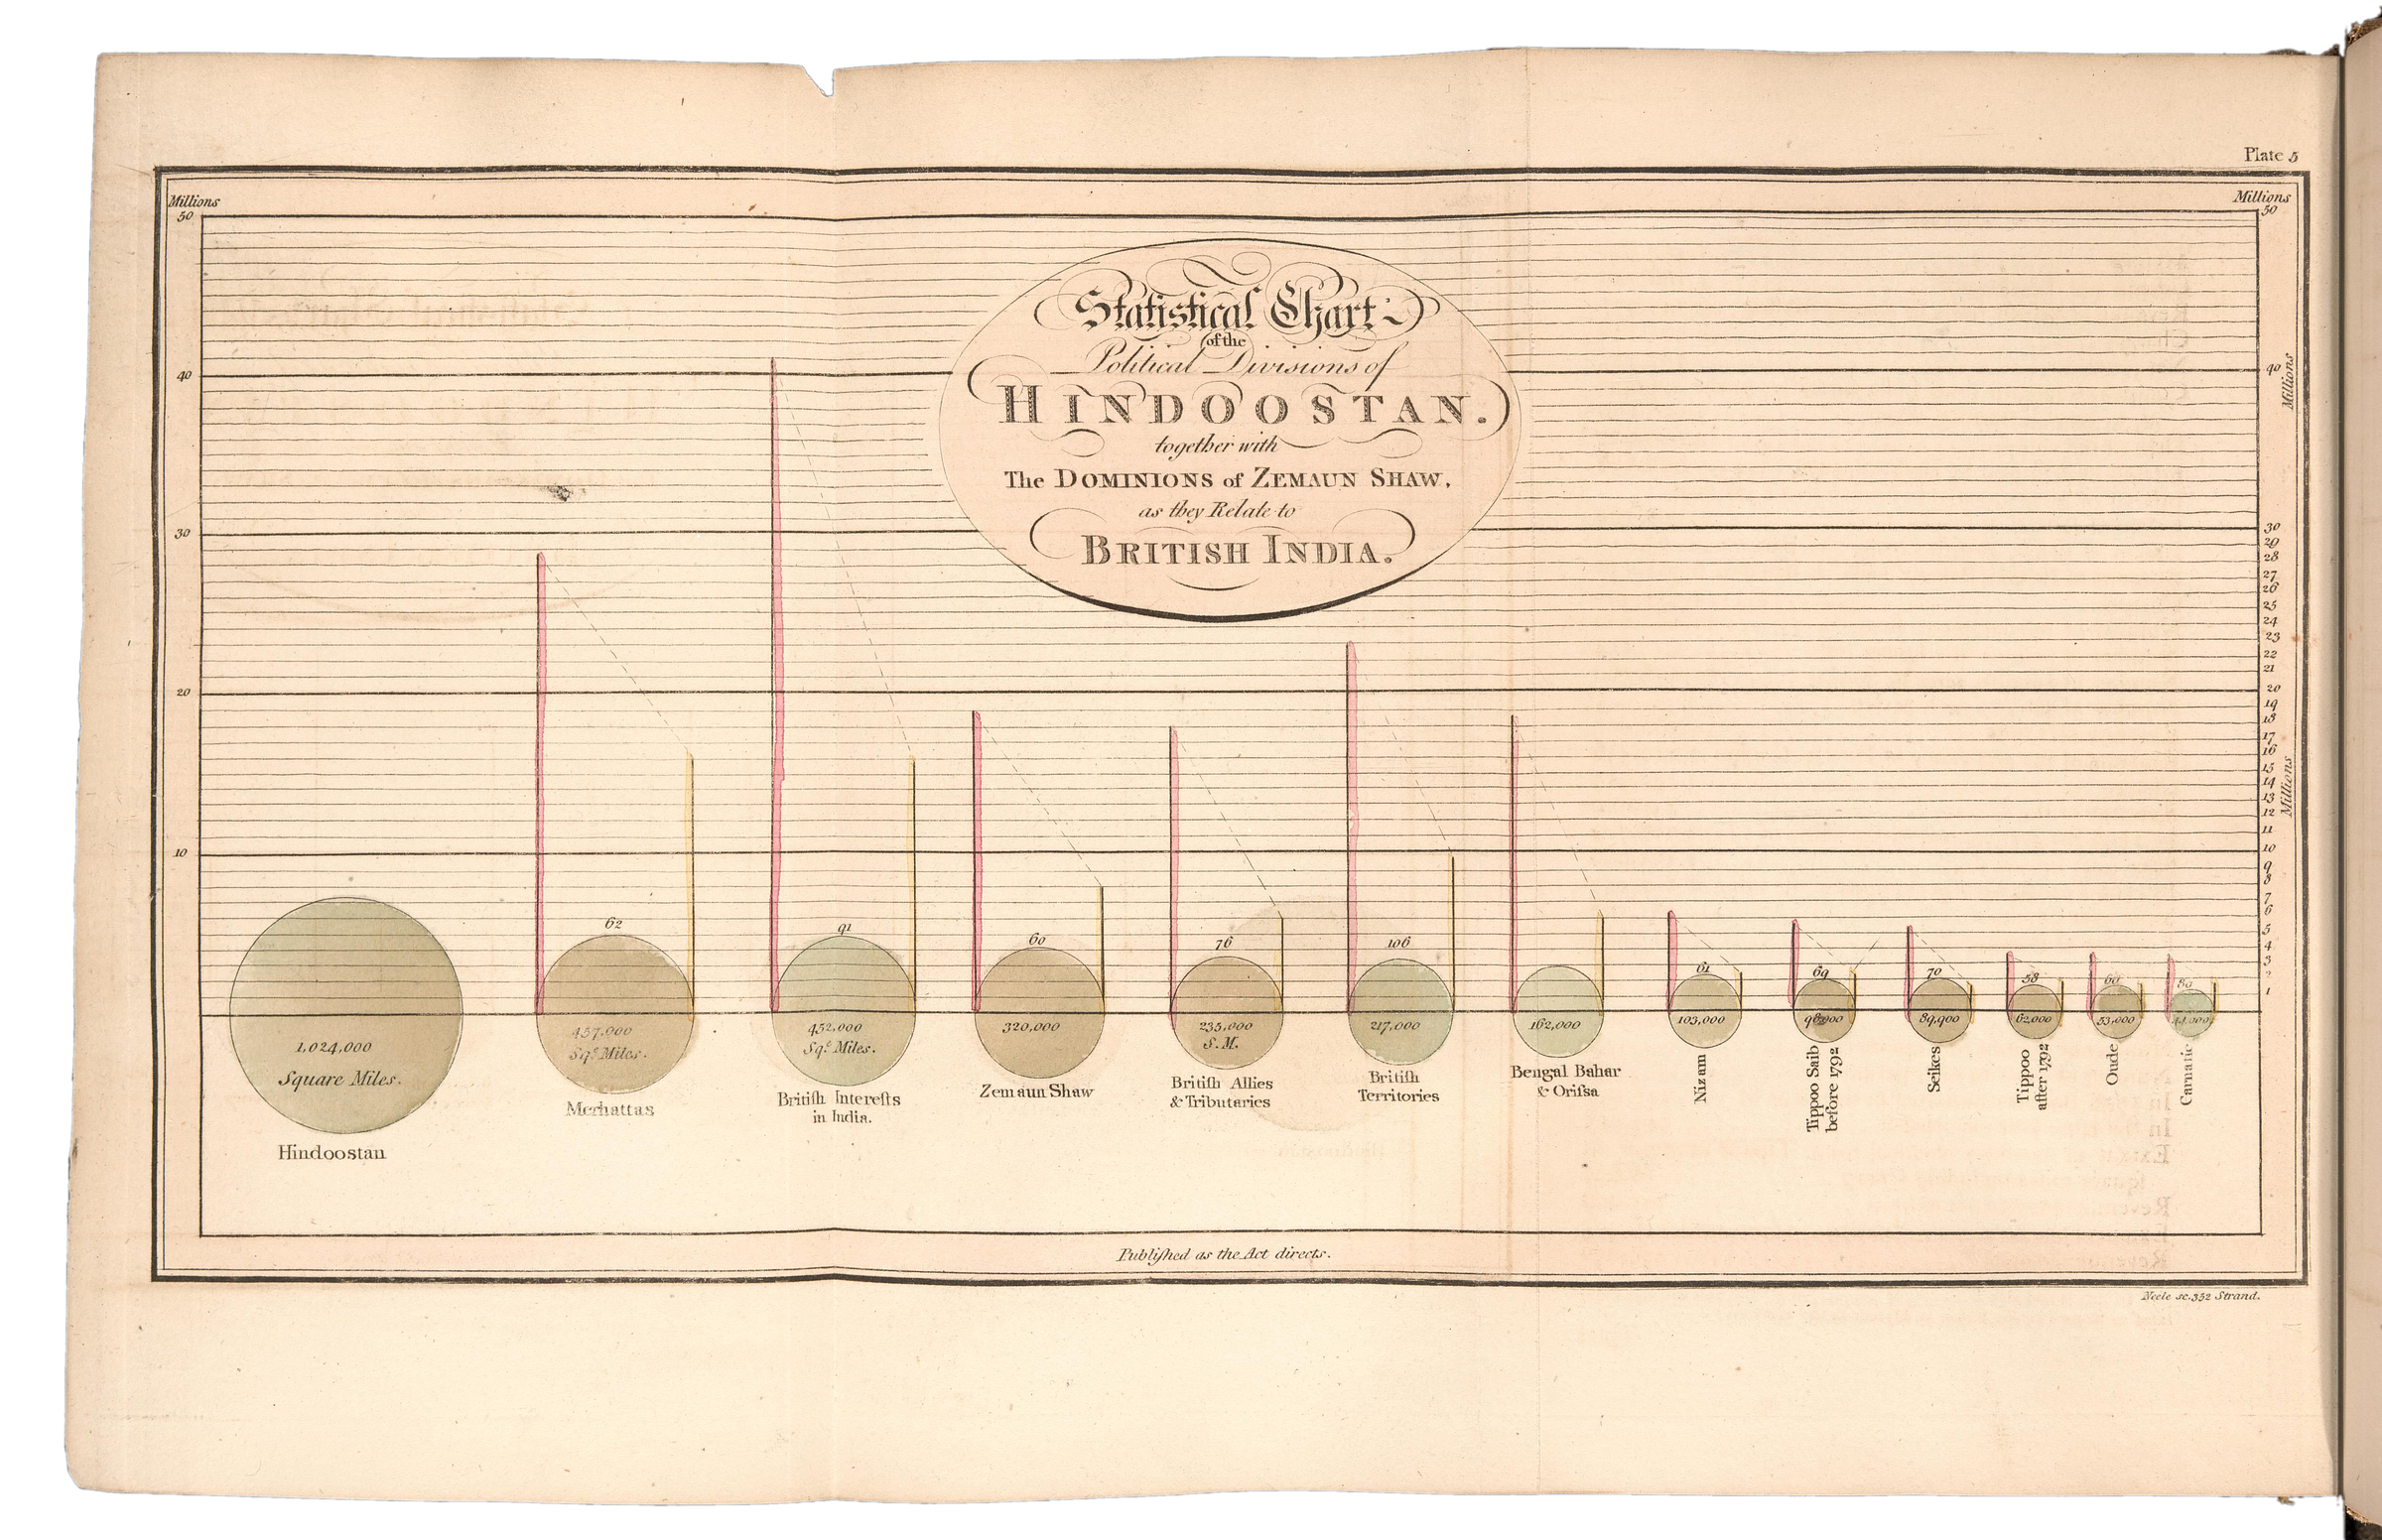 Plate 5
Millions
Millions
50
50
Statistical Chart
of the
Political Divisions of
HINDOOSTAN.
together with
The DOMINIONS of ZEMAUN SHAW,
as they Relate to
BRITISH INDIA.
40
40
Millions
30
30
29
28
27
26
25
24
23
22
21
20
20
19
18
17
16
15
14
13
12
11
Millions
10
10
9
8
7
6
5
4
3
2
1
62
91
60
76
106
61
69
70
58
60
80
1,024,000
Square Miles.
Hindoostan
457,000
Sqe. Miles.
Merhattas
452,000
Sqe. Miles.
Britiſh Intereſts
in India.
320,000
Zemaun Shaw
235,000
S.M.
Britiſh Allies
& Tributaries
217,000
Britiſh
Territories
162,000
Bengal Bahar
& Oriſsa
103,000
Nizam
Tippoo Saib
before 1792
89,900
Seikes
62,000
Tippoo
after 1792
53,000
Oude
Carnatic
Publiſhed as the Act directs.
Neele sc. 352 Strand.